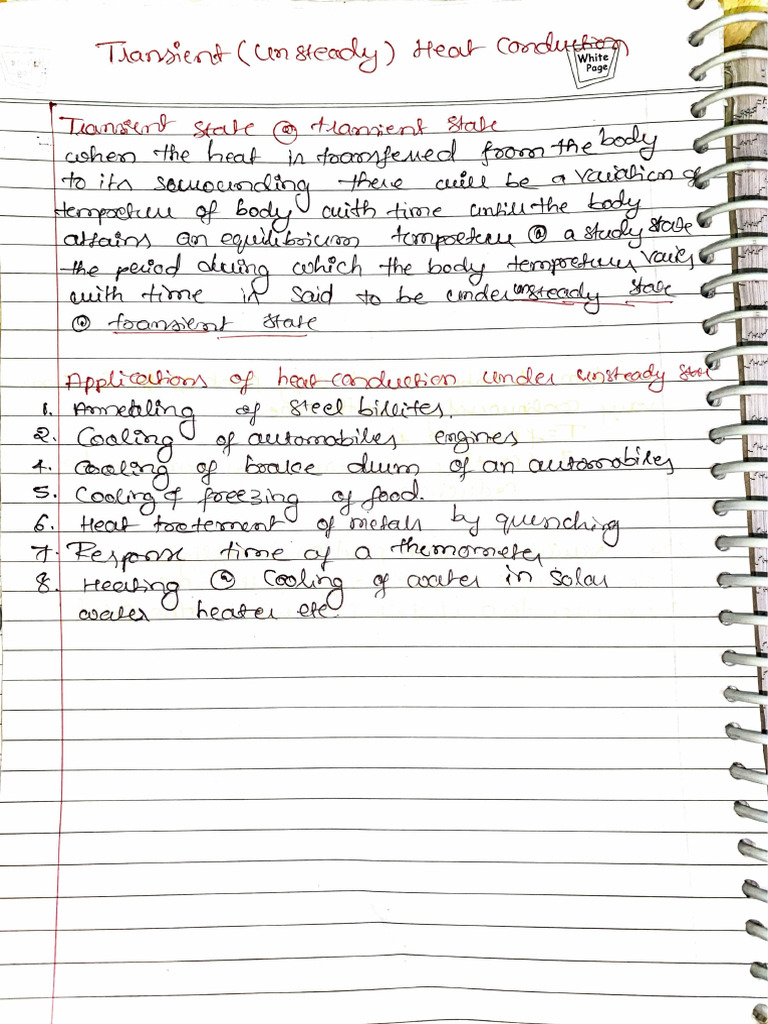 Transient (unsteady) Heat conduction
White
Page
Transient state @ transient state
when the heat is transferred from the body
to its sorrounding there will be a variation of
tempreture of body with time untill the body
attains an equilibrium tempreture @ a study state
the period during which the body tempreture varies
with time is said to be under unsteady state
@ transient state
Applications of heat conduction under unsteady state
1. Annealing of steel billites.
2. Cooling of automobiles engines
4. Cooling of brake drum of an automobiles
5. Cooling & freezing of food.
6. Heat tretement of metals by quenching
7. Response time of a thermometer
8. Heating @ Cooling of water in solar
water heater etc.